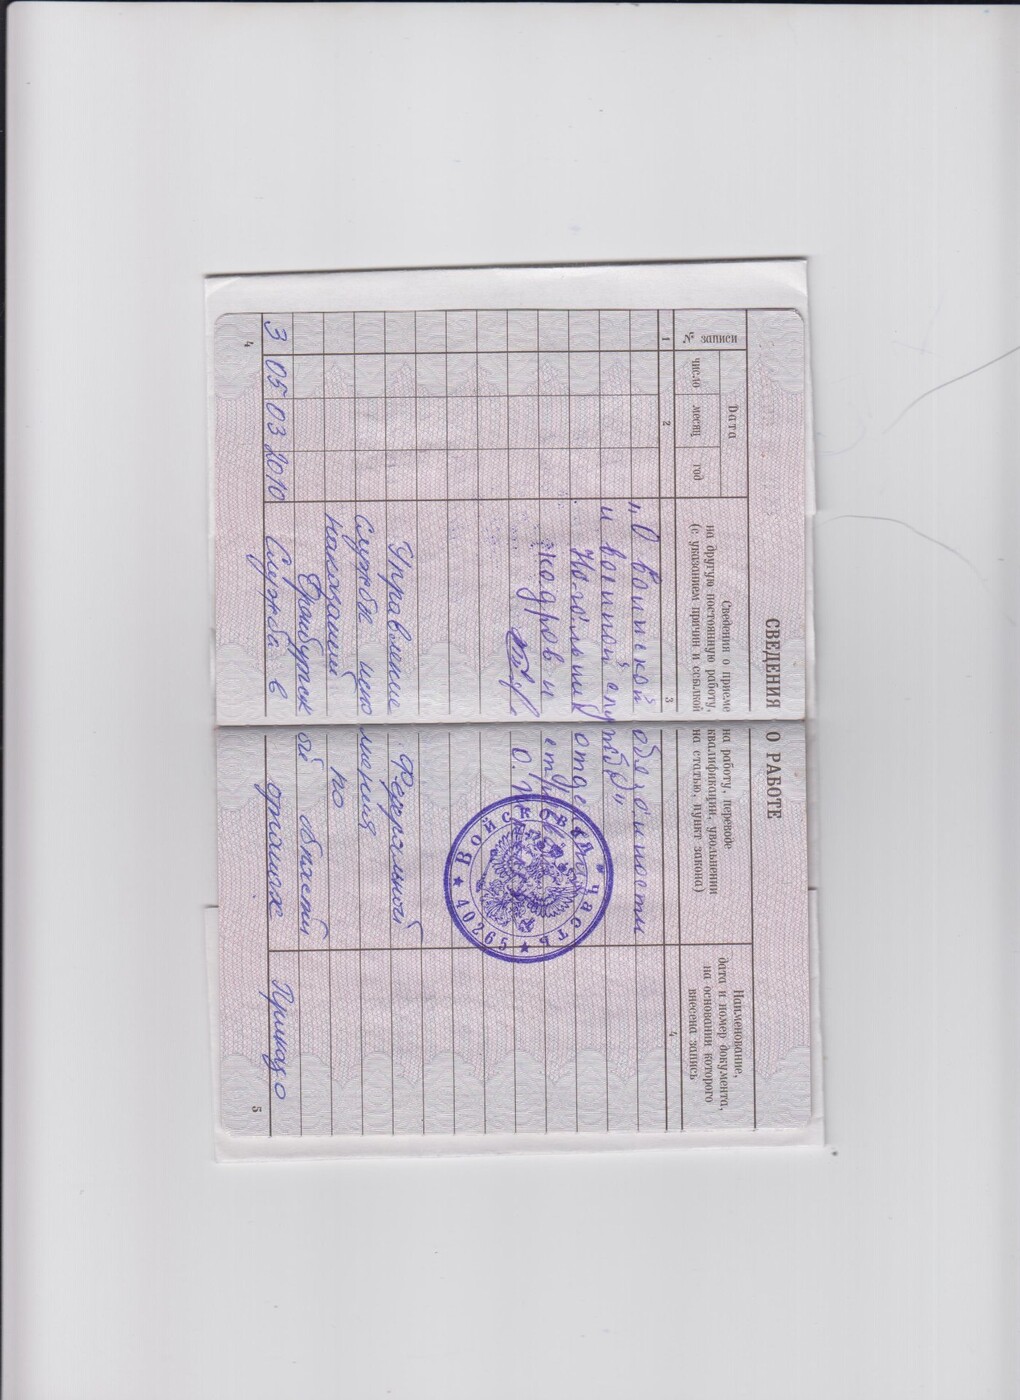 СВЕДЕНИЯ О РАБОТЕ
№ записи
Дата
число
месяц
год
Сведения о приеме на работу, переводе
на другую постоянную работу, квалификации, увольнении
(с указанием причин и ссылкой на статью, пункт закона)
Наименование,
дата и номер документа,
на основании которого
внесена запись
1 2 3 4
„О воинской обязанности
и военной службе"
Начальник отдела
кадров и
Войсковая часть
40265
Управление Федеральной
Службы исполнения
наказаний по
Оренбургской области
3 05 03 2010 Служба в органах Приказ о
4
5